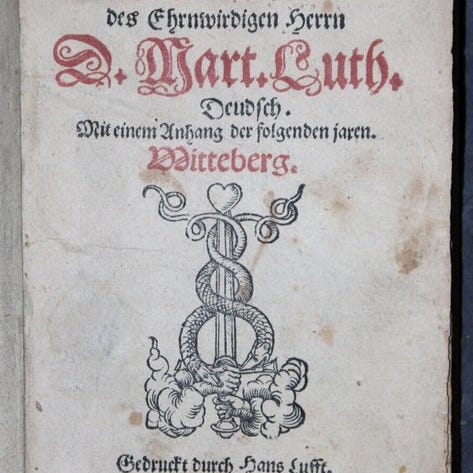 des Ehrnwirdigen Herrn
D. Mart. Luth.
Deudsch.
Mit einem Anhang der folgenden jaren.
Witteberg.
Gedruckt durch Hans Lufft.